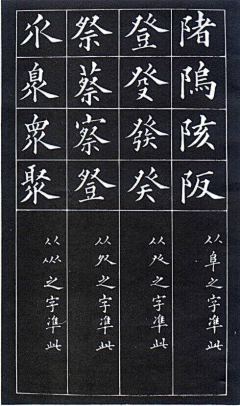 陼隖陔阪
从𨸏之字準此
登癹發癸
从癶之字準此
祭蔡察豋
从𣦼之字準此
乑臮眾聚
从乑之字準此